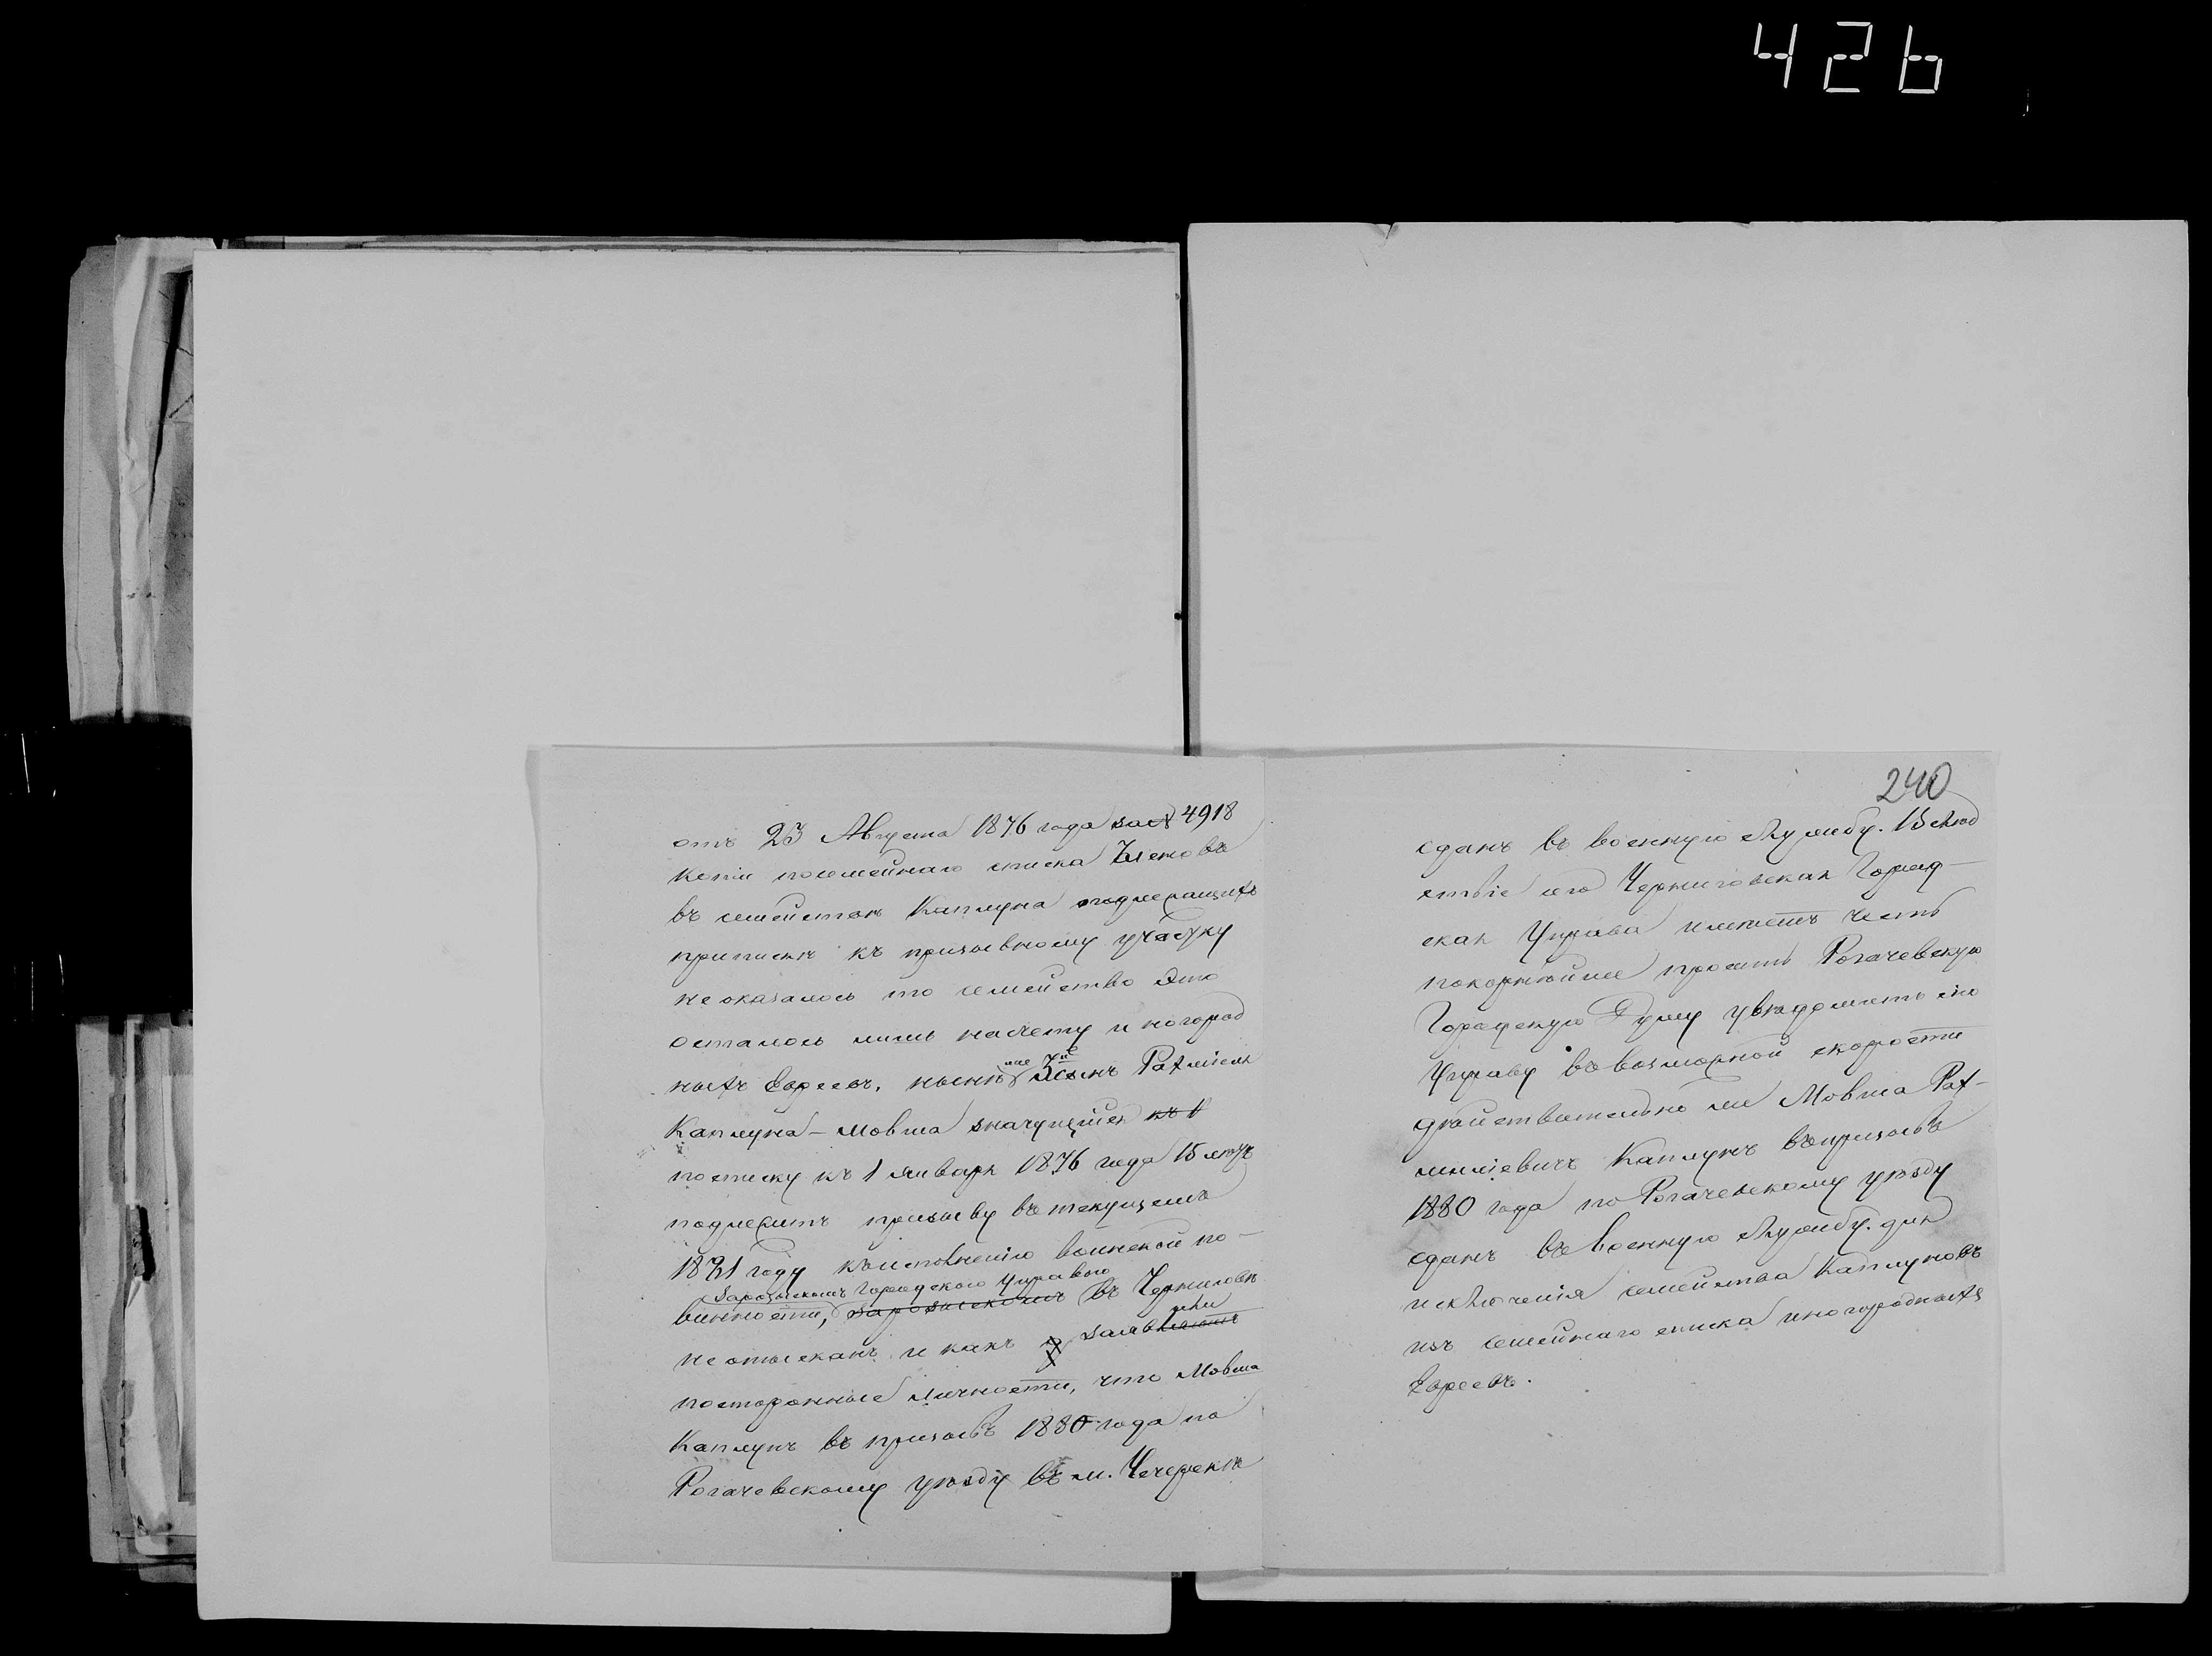 426
отъ 23 Августа 1876 года за № 4918
копіи посемейнаго списка членовъ
въ семействѣ Каплуна подлежащихъ
припискѣ къ призывному участку
не оказалось то семейство это
осталось лишь на счету иногород
ныхъ Евреевъ, нынѣ же 3й сынъ Рахміеля
Каплуна – Мовша значущійся къ 1
по списку къ 1 Января 1876 года 15 лѣтъ
подлежитъ призыву въ текущемъ
1881 году къ исполненію воинской по-
Зарозыскомъ Городского Управою
винности, зарозыскомъ въ Черниговѣ
не отысканъ и какъ заявили
посторонные личности, что Мовша
Каплунъ въ призывъ 1880 года по
Рогачевскому уѣзду въ м. Чечерскѣ
240
сданъ въ военную службу. Вслѣд
ствіе сего Черниговская Город-
ская Управа имѣетъ честь
покорнѣйше просить Рогачевскую
Городскую Думу увѣдомить сію
Управу въ возможной скорости
дѣйствительно ли Мовша Рах-
миліевичъ Каплунъ въ призывъ
1880 года по Рогачевскому уѣзду
сданъ въ военную службу. для
исключенія семейства Каплуновъ
изъ семейнаго списка иногородныхъ
Евреевъ.